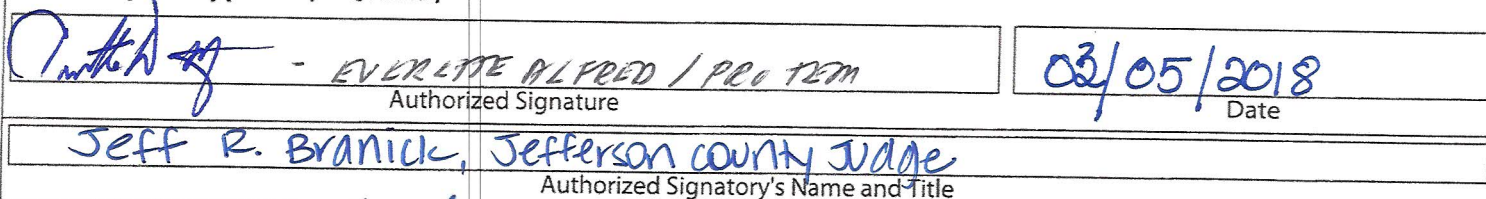 - EVERETTE ALFRED / PRO TEM
03/05/2018
Authorized Signature
Date
Jeff R. Branick, Jefferson County Judge
Authorized Signatory's Name and Title